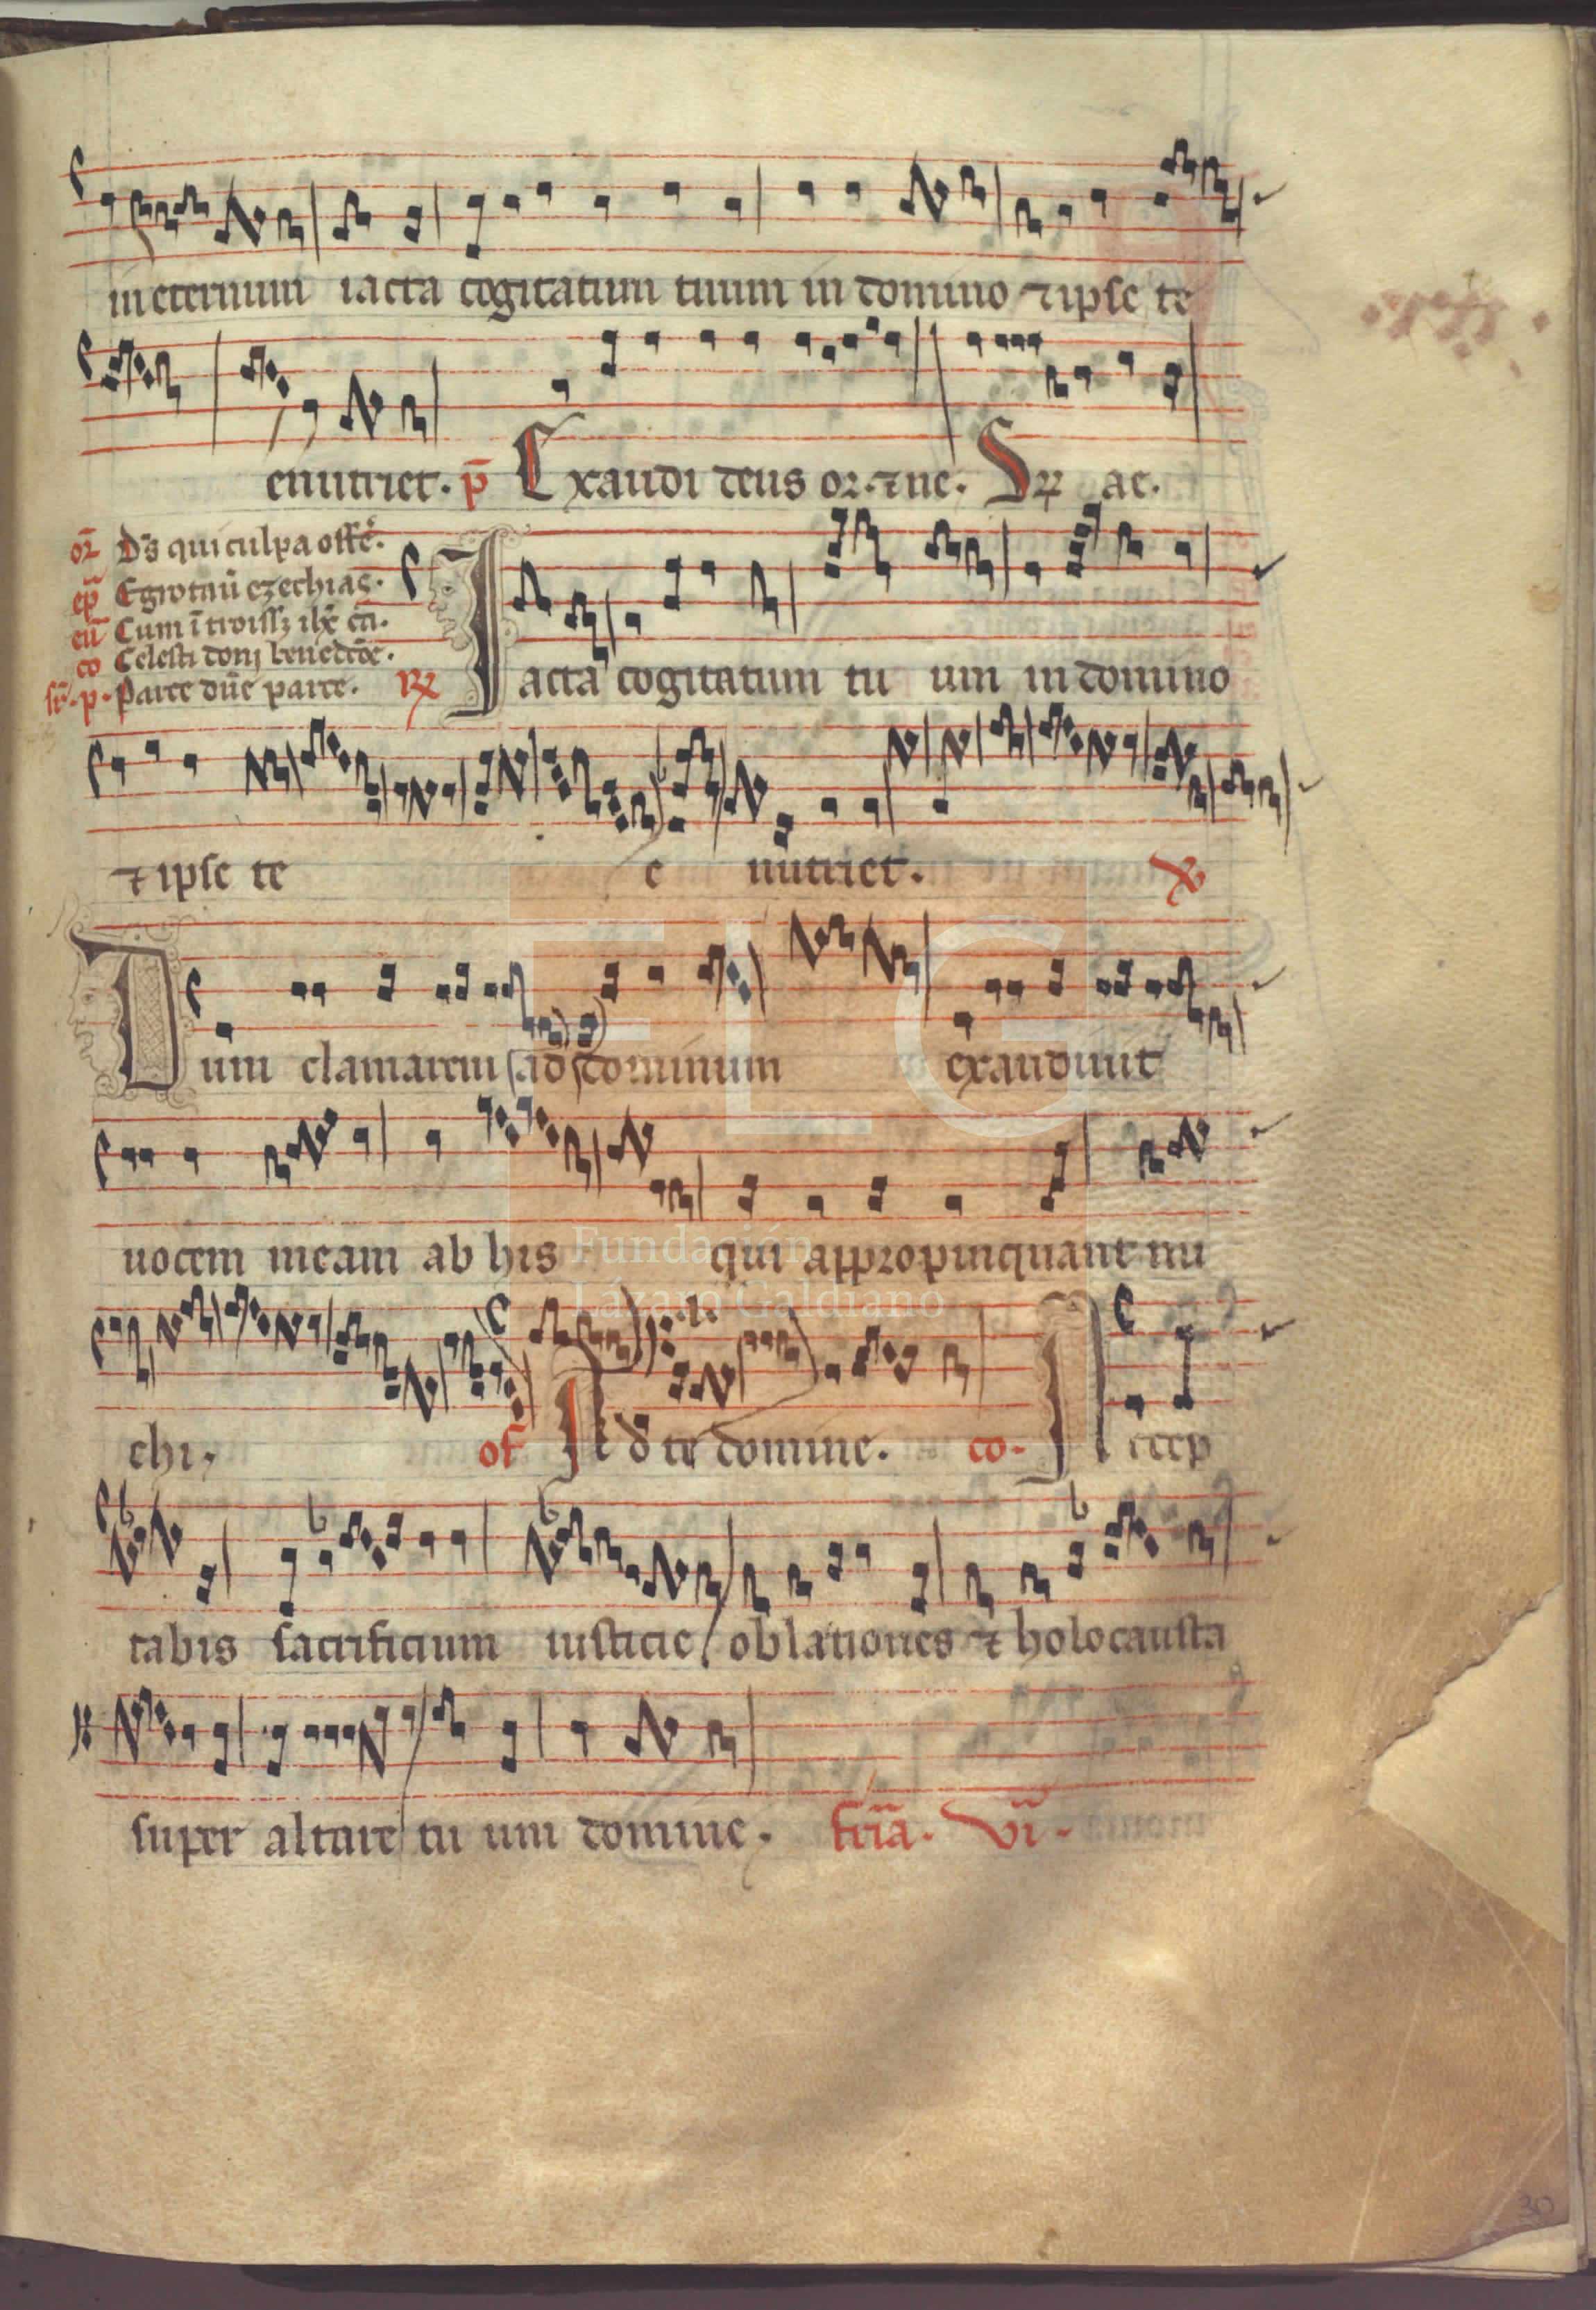 in eternum iacta cogitatum tuum in domino ⁊ ipse te
enutriet. p̄ Exaudi deus or. ⁊ ne. Sꝑ ae.
or̄ Ds̄ qui culpa offē.
ep̄ Egrotaū ezechias.
eū Cum ītroissꝫ ihc̄ cā.
co Celesti donj benedc̄oē.
p. Parce dn̄e parce.
R Iacta cogitatum tu um in domino
⁊ ipse te e nutriet. V
Dum clamarem ad dominum exaudiuit
uocem meam ab his qui appropinquant mi
chi. of Ad te domine. co. Accep
tabis sacrificium iusticie oblationes ⁊ holocausta
super altare tu um domine. feria. vi.
FLG
Fundación
Lázaro Galdiano
30